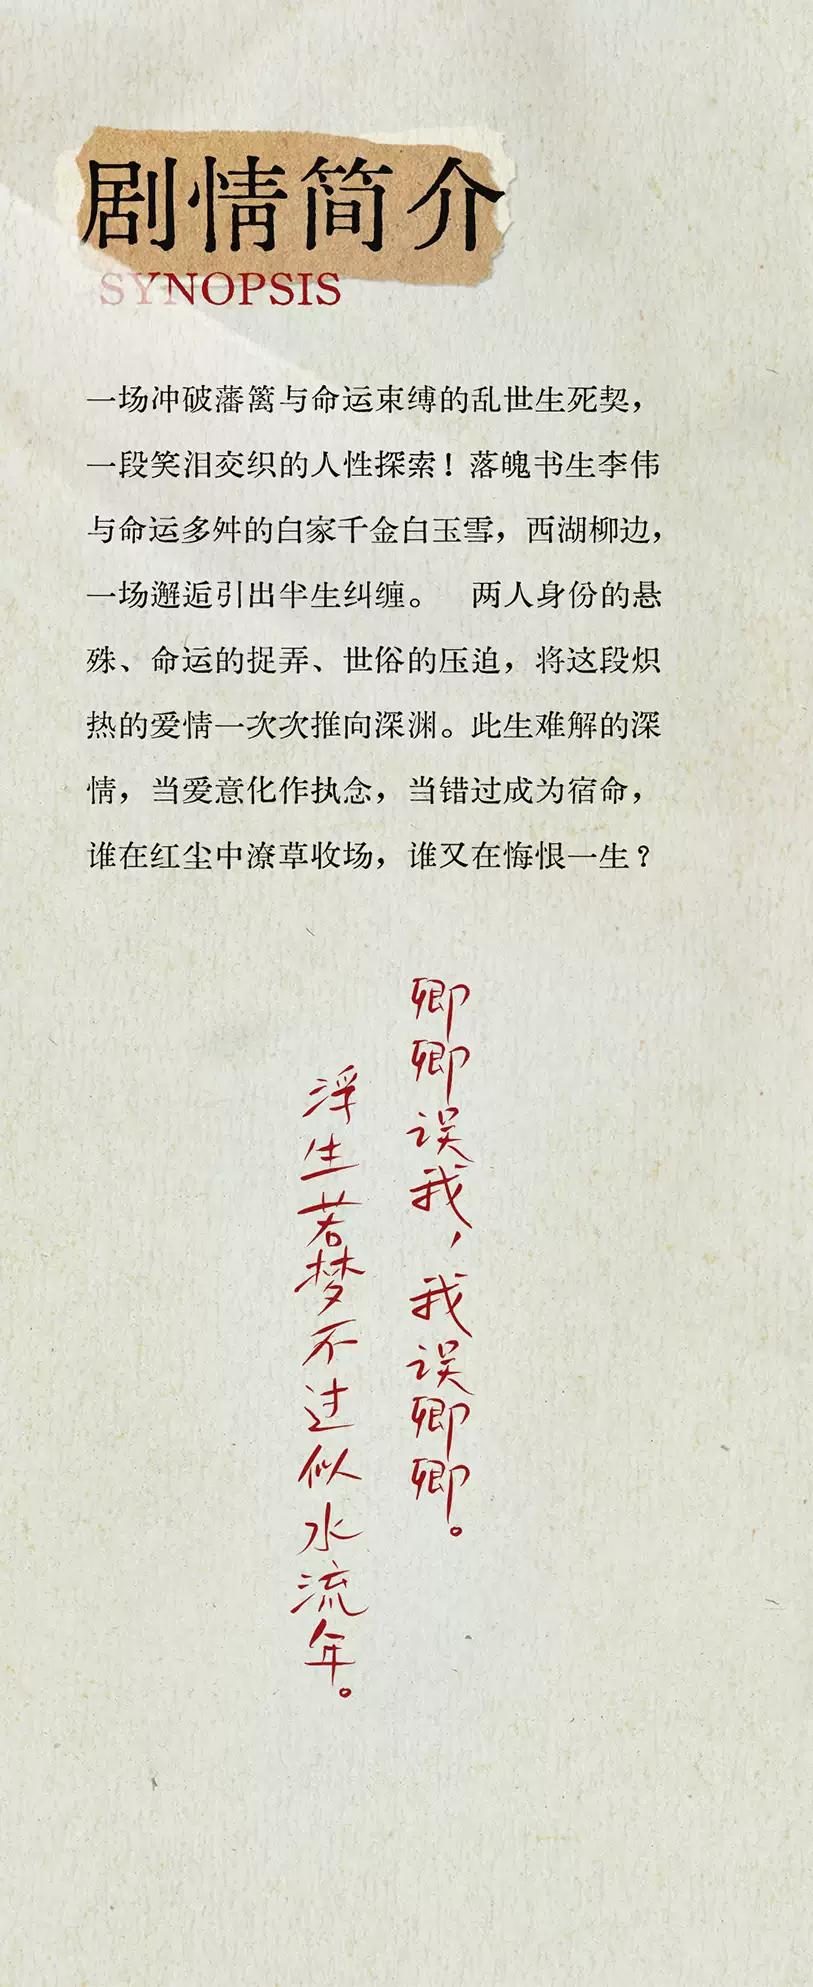 剧情简介
SYNOPSIS
一场冲破藩篱与命运束缚的乱世生死契，
一段笑泪交织的人性探索！落魄书生李伟
与命运多舛的白家千金白玉雪，西湖柳边，
一场邂逅引出半生纠缠。　两人身份的悬
殊、命运的捉弄、世俗的压迫，将这段炽
热的爱情一次次推向深渊。此生难解的深
情，当爱意化作执念，当错过成为宿命，
谁在红尘中潦草收场，谁又在悔恨一生？
卿卿误我，我误卿卿。
浮生若梦不过似水流年。